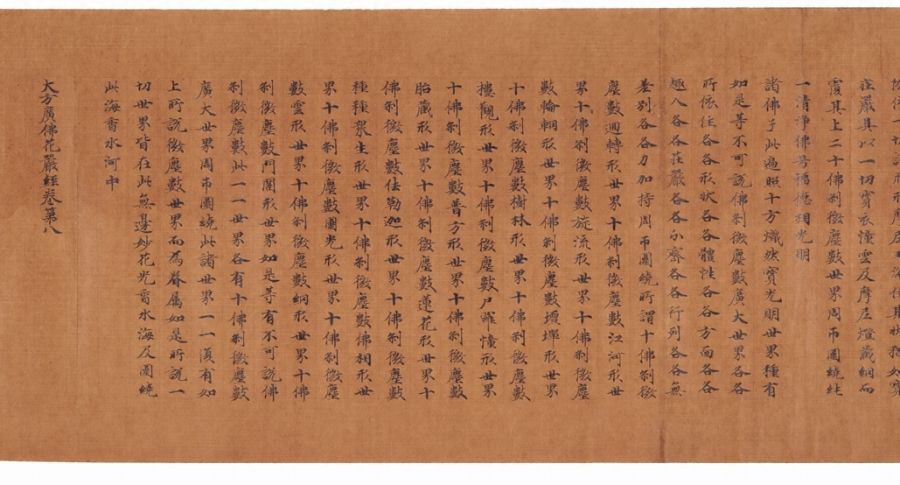 莊嚴具以一切寶衣幢雲及摩尼燈藏網而
覆其上二十佛剎微塵數世界周帀圍繞純
一清淨佛号福德相光明
諸佛子此遍照十方熾然寶光明世界種有
如是等不可說佛剎微塵數廣大世界各各
所依住各各形狀各各體性各各方面各各
趣入各各莊嚴各各分齊各各行列各各無
差別各各力加持周帀圍繞所謂十佛剎微
塵數迴轉形世界十佛剎微塵數江河形世
界十佛剎微塵數旋流形世界十佛剎微塵
數輪輞形世界十佛剎微塵數壇墠形世界
十佛剎微塵數樹林形世界十佛剎微塵數
樓觀形世界十佛剎微塵數尸羅幢形世界
十佛剎微塵數普方形世界十佛剎微塵數
胎藏形世界十佛剎微塵數蓮花形世界十
佛剎微塵數佉勒迦形世界十佛剎微塵數
種種眾生形世界十佛剎微塵數佛相形世
界十佛剎微塵數圓光形世界十佛剎微塵
數雲形世界十佛剎微塵數網形世界十佛
剎微塵數門闥形世界如是等有不可說佛
剎微塵數此一一世界各有十佛剎微塵數
廣大世界周帀圍繞此諸世界一一復有如
上所說微塵數世界而為眷屬如是所說一
切世界皆在此無邊妙花光香水海及圍繞
此海香水河中
大方廣佛花嚴經卷第八